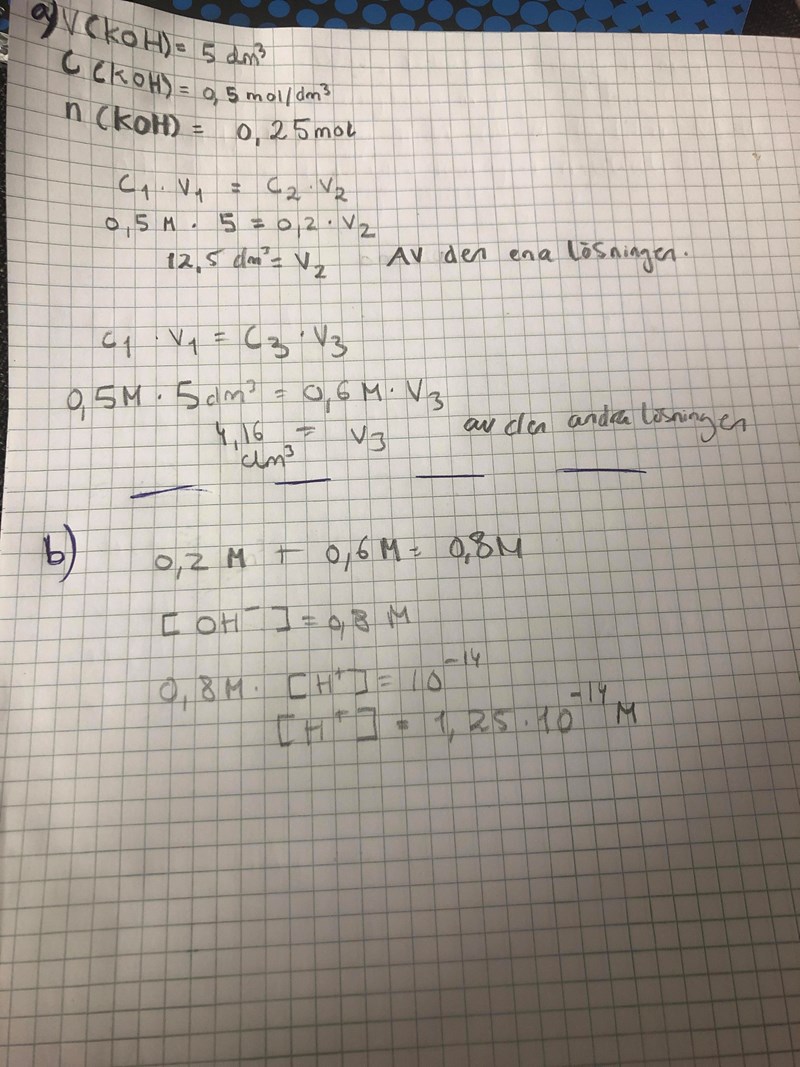 a) V(KOH) = 5 dm³
C (KOH) = 0,5 mol/dm³
n (KOH) = 0,25 mol
C₁ · V₁ = C₂ · V₂
0,5 M · 5 = 0,2 · V₂
12,5 dm³ = V₂ AV den ena lösningen.
C₁ · V₁ = C₃ · V₃
0,5M · 5 dm³ = 0,6 M · V₃
4,16 dm³ = V₃ av den andra lösningen
b) 0,2 M + 0,6 M = 0,8M
[OH⁻] = 0,8 M
0,8M · [H⁺] = 10⁻¹⁴
[H⁺] = 1,25 · 10⁻¹⁴ M